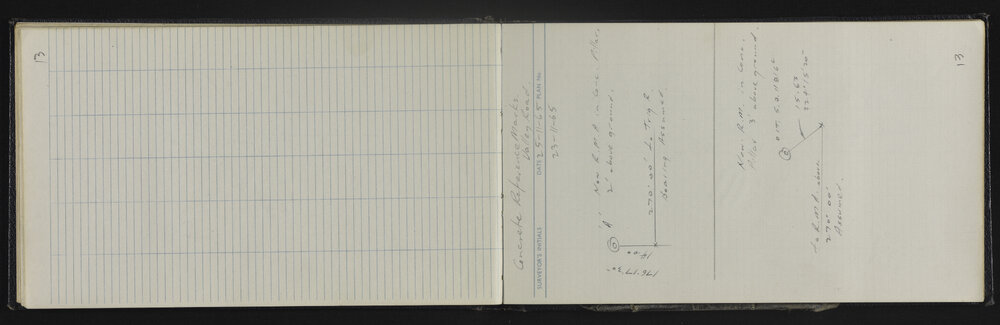 13
Concrete Reference Marks
Valley Road
SURVEYOR'S INITIALS DATE 25-11-65 PLAN No.
23-11-65
"A" New R.M.A in Conc. Pillar.
2' above ground.
270° 00' to Trig
Bearing Assumed
14.00
176° 17' 30"
New R.M. in Conc.
Pillar 3' above ground
15.63
to R.M.A. above
270° 00'
Assumed.
13